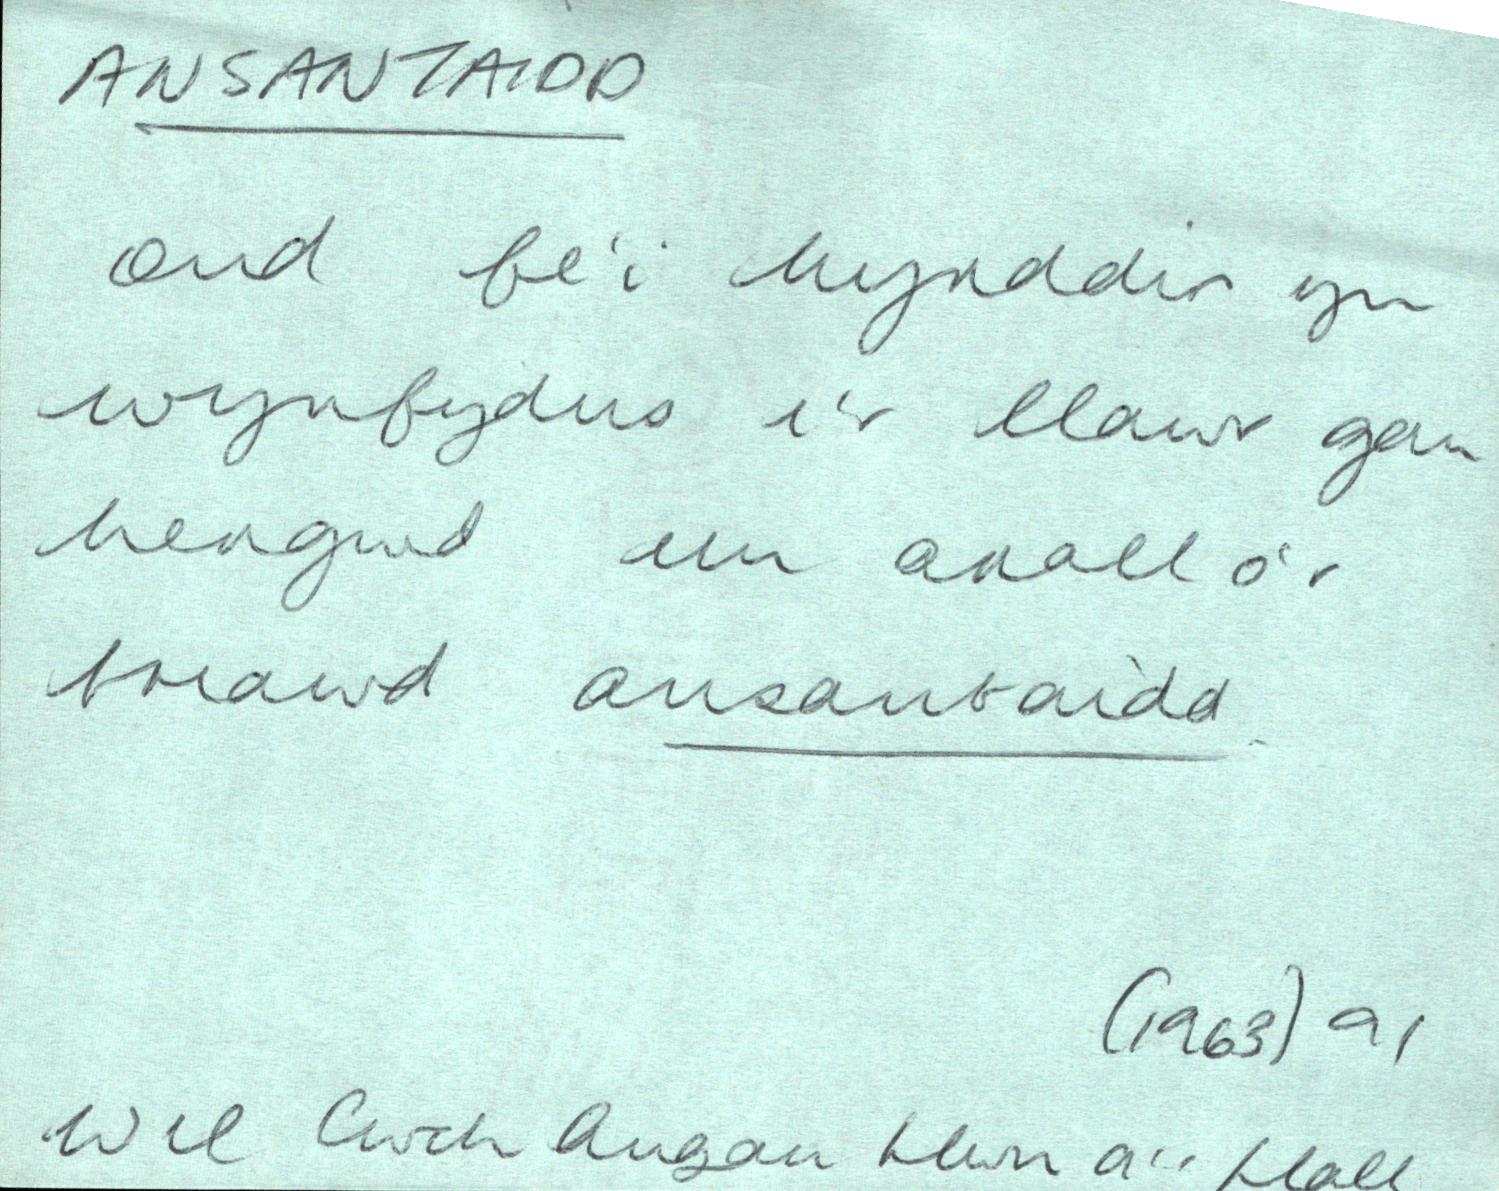 ANSANTAIDD
ond fe'i hyrddir yn
wynfydus i'r llawr gan
hergwd un arall o'r
triawd ansantaidd
(1963) 91
Wil Cwch Angau Hwn a'r Llall